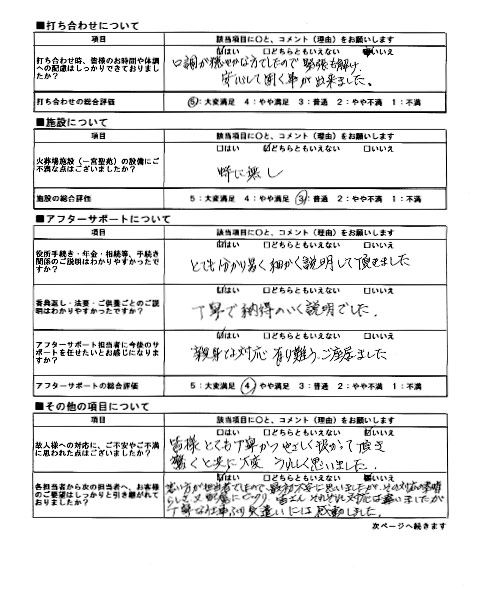 ■打ち合わせについて
項目 該当項目に○と、コメント（理由）をお願いします
打ち合わせ時、皆様のお時間や体調への配慮はしっかりできておりましたか？
☑はい □どちらともいえない □いいえ
口調が穏やかな方でしたので緊張も解け、
安心して聞く事が出来ました。
打ち合わせの総合評価 5：大変満足 4：やや満足 3：普通 2：やや不満 1：不満
■施設について
項目 該当項目に○と、コメント（理由）をお願いします
火葬場施設（一宮聖苑）の設備にご不満な点はございましたか？
□はい ☑どちらともいえない □いいえ
特に無し
施設の総合評価 5：大変満足 4：やや満足 3：普通 2：やや不満 1：不満
■アフターサポートについて
項目 該当項目に○と、コメント（理由）をお願いします
役所手続き・年金・相続等、手続き関係のご説明はわかりやすかったですか？
☑はい □どちらともいえない □いいえ
とても分かり易く細かく説明して頂きました
香典返し・法要・ご供養ごとのご説明はわかりやすかったですか？
☑はい □どちらともいえない □いいえ
丁寧で納得のいく説明でした.
アフターサポート担当者に今後のサポートを任せたいとお感じになりますか？
☑はい □どちらともいえない □いいえ
親身な対応 有り難うご座居ました
アフターサポートの総合評価 5：大変満足 4：やや満足 3：普通 2：やや不満 1：不満
■その他の項目について
項目 該当項目に○と、コメント（理由）をお願いします
故人様への対応に、ご不安やご不満に思われた点はございましたか？
□はい □どちらともいえない ☑いいえ
皆様とても丁寧かつやさしく扱かって頂き
驚くと共に大変 うれしく思いました.
各担当者から次の担当者へ、お客様のご要望はしっかりと引き継がれておりましたか？
☑はい □どちらともいえない □いいえ
若い方が担当者でしたので、最初不安に思いましたが、その対応の素晴
らしさ
丁寧な仕事ぶり
には感動しました.
次ページへ続きます